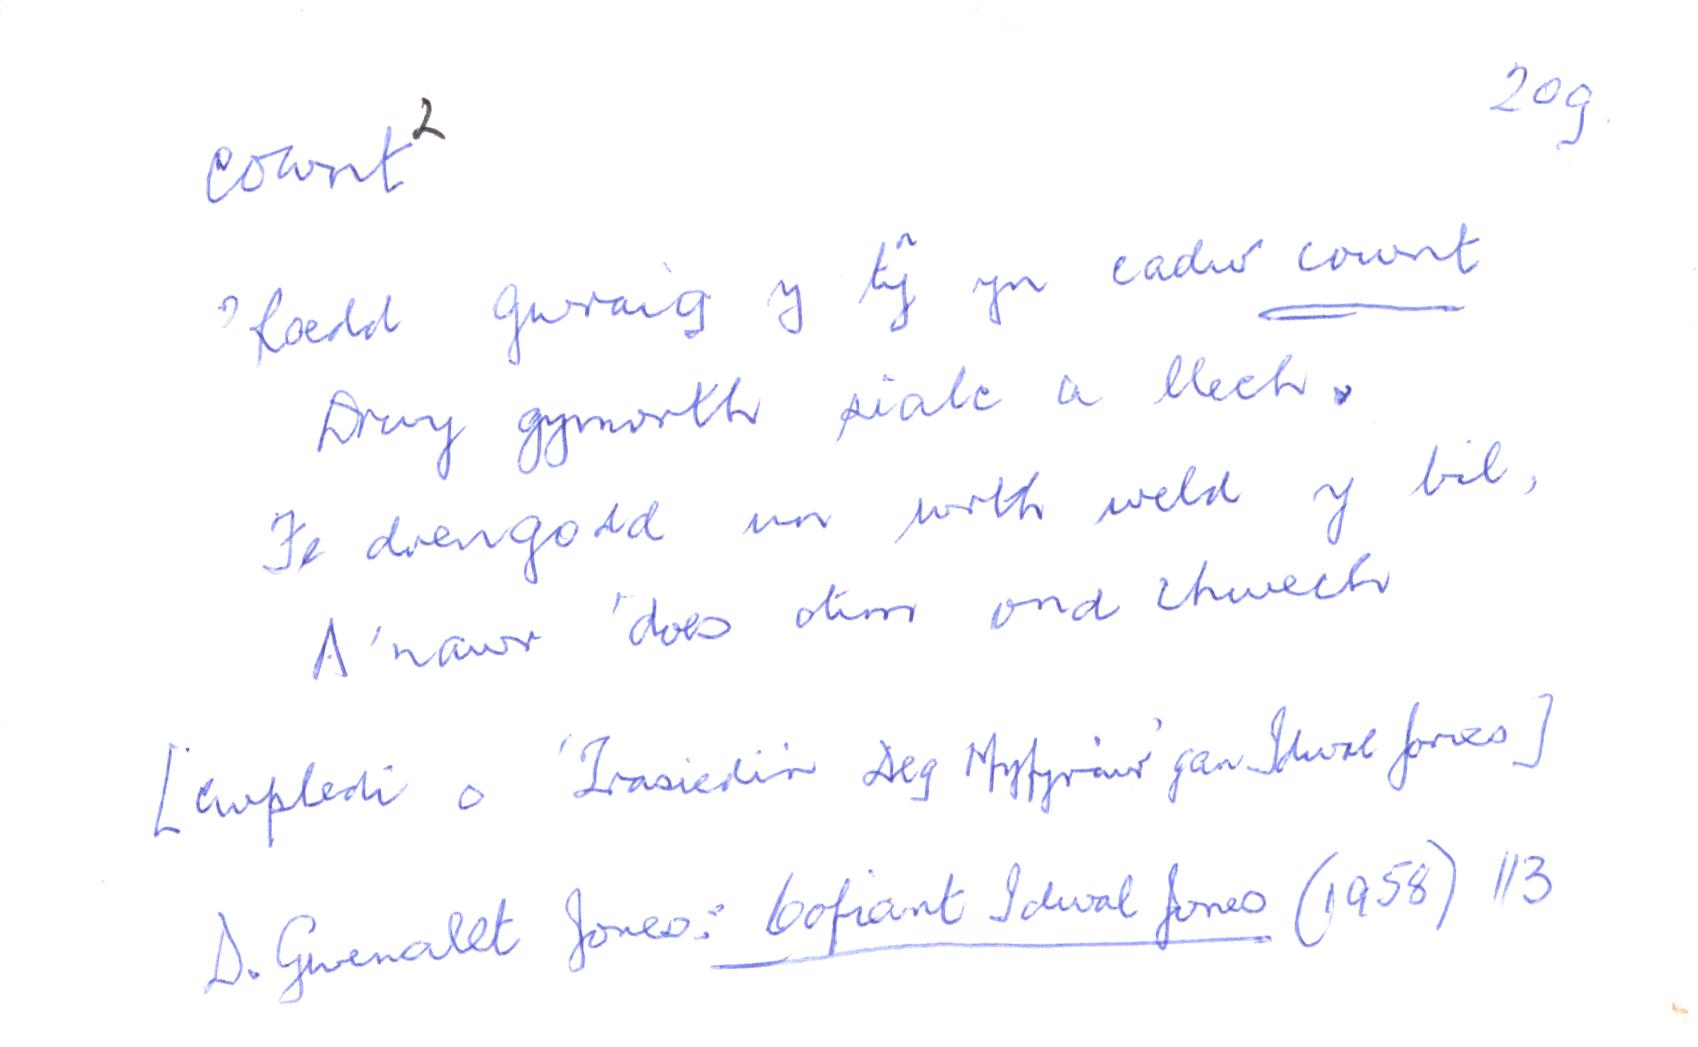 20g.
cownt²
'Roedd gwraig y tŷ yn cadw cownt
Drwy gymorth sialc a llech.
Fe drengodd un wrth weld y bil,
A 'nawr 'does dim ond chwech
[cwpledi o 'Trasiedi'r Deg Myfyriwr' gan Idwal Jones]
D. Gwenallt Jones: Cofiant Idwal Jones (1958) 113